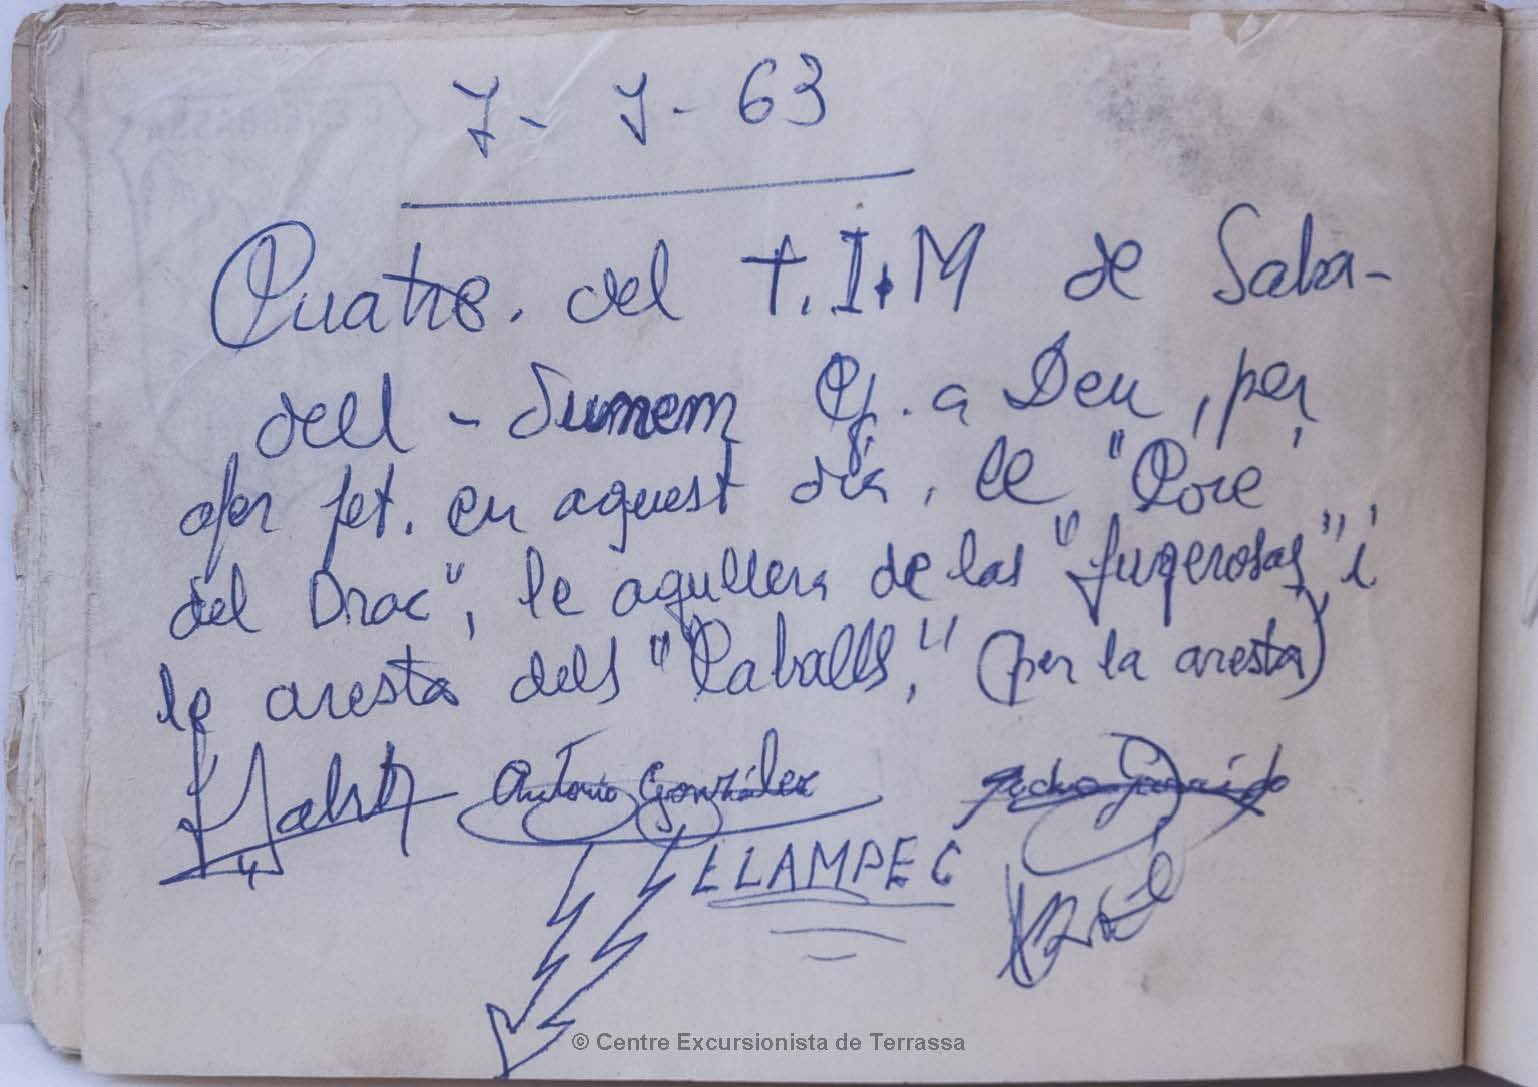 7-7-63
Quatre. del T.I.M de Saba-
dell - Dunem Gr. a Deu, per
ofer fet. en aquest dia, le "Core
del Drac", le agullera de las "fugerosas" i
le aresta dels "Caballs," (per la aresta)
Antonio González Pedro Garrido
ELAMPEC
© Centre Excursionista de Terrassa